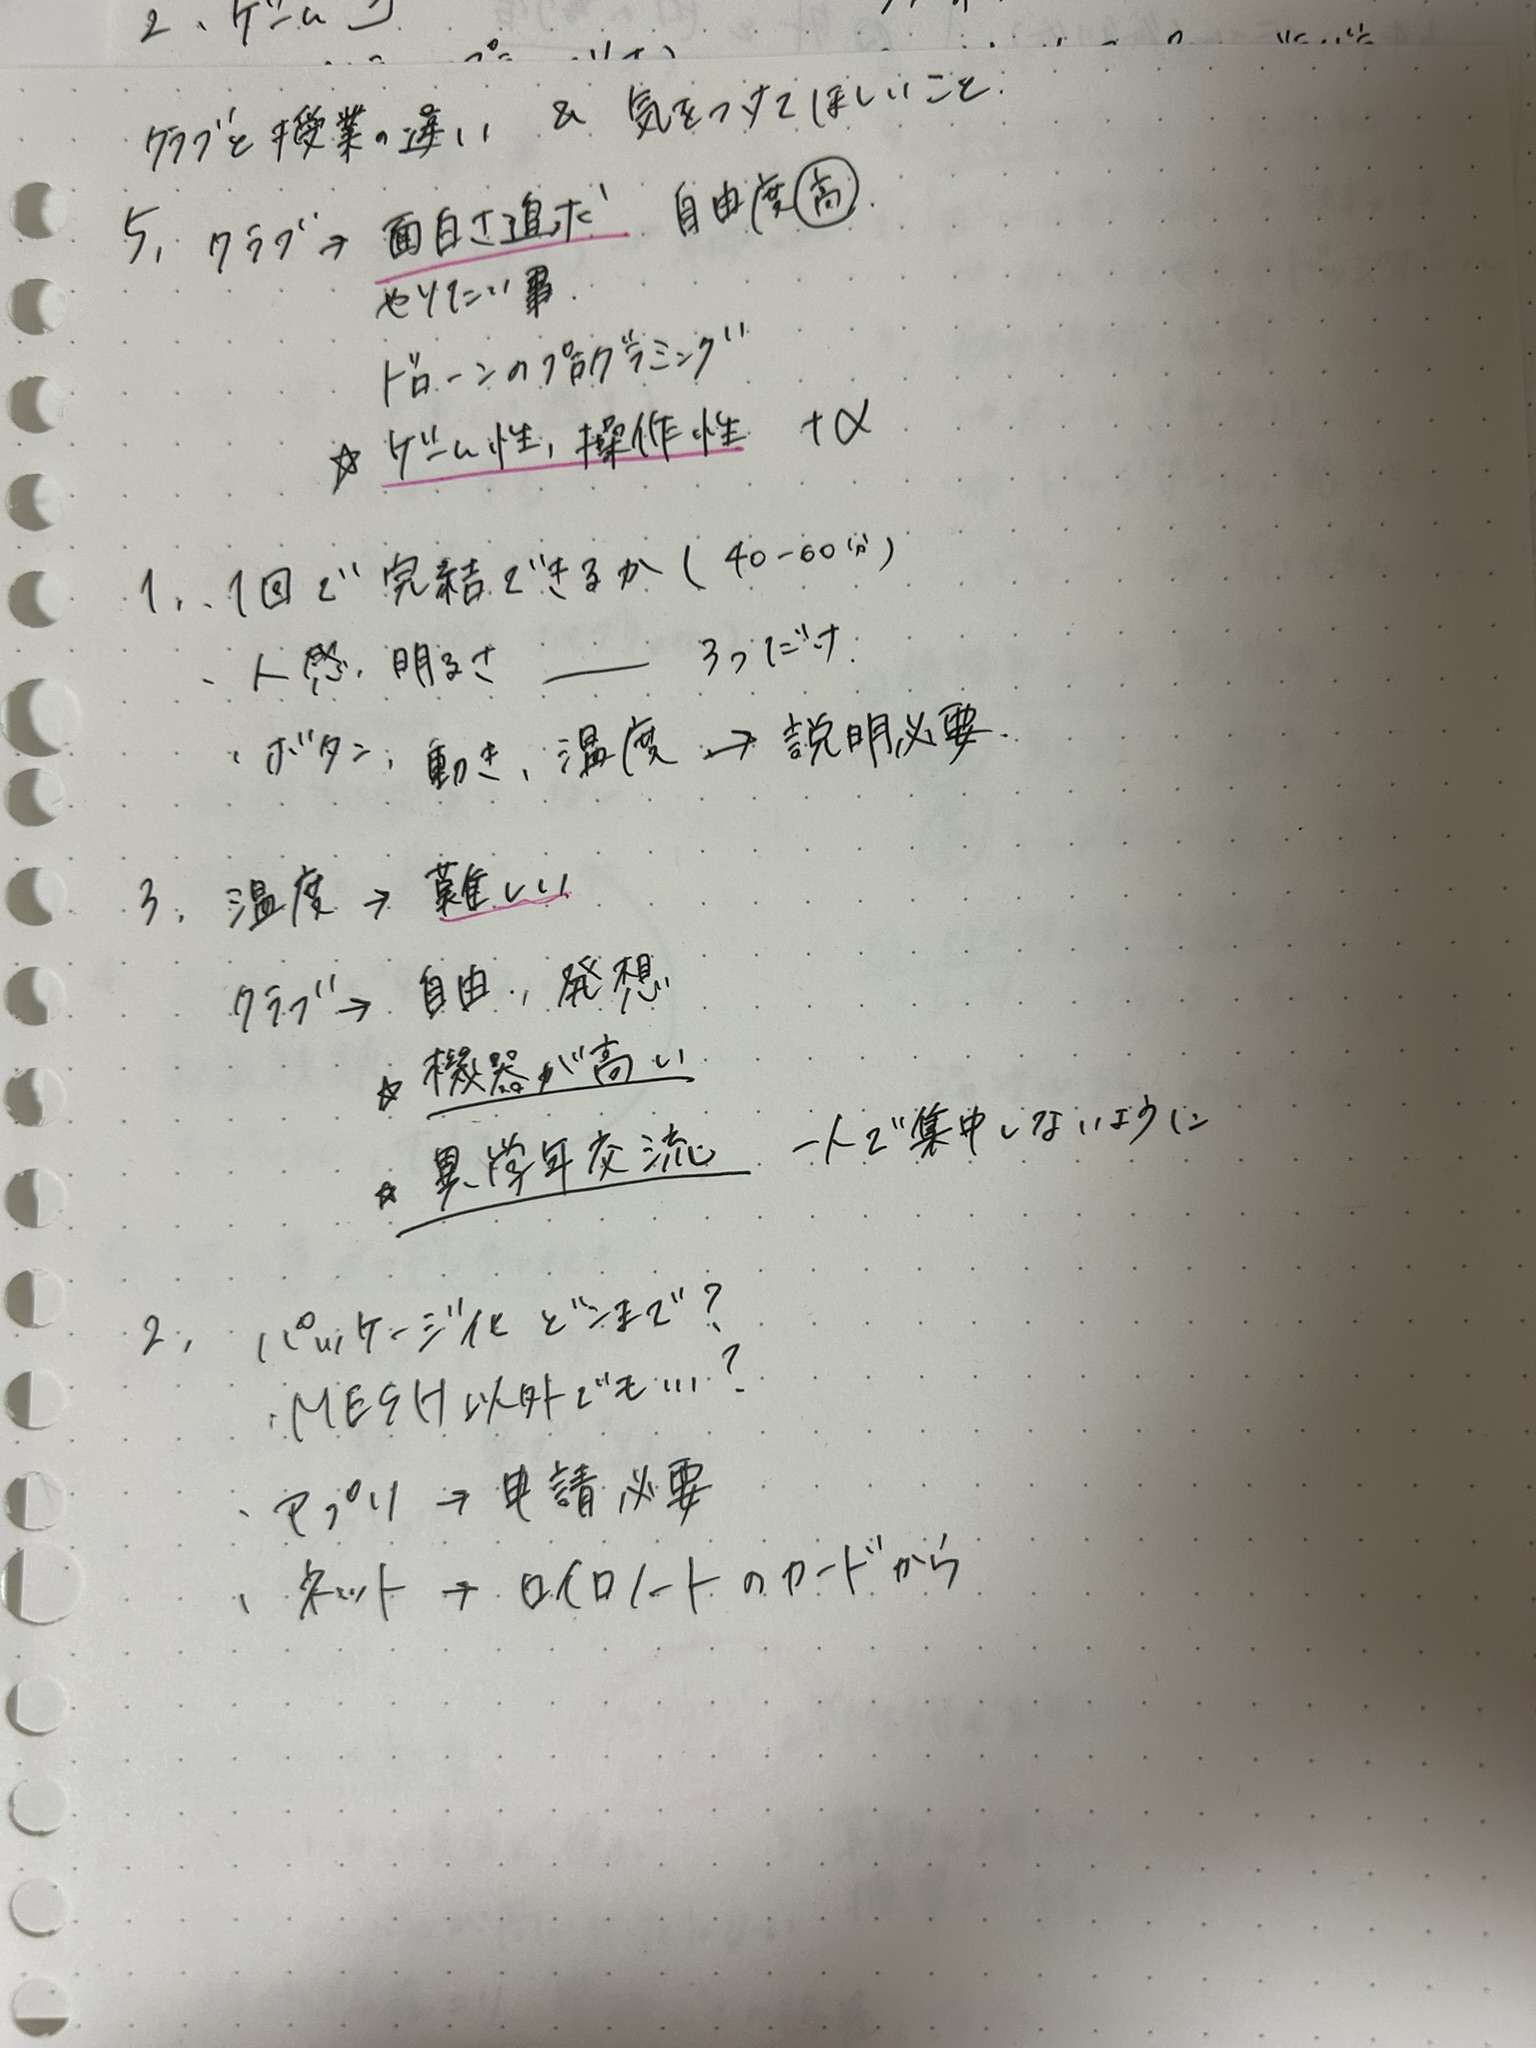 2、ゲーム
クラブと授業の違い & 気をつけてほしいこと.
5、クラブ→ 面白さ追求 自由度高.
やりたい事.
ドローンのプログラミング
☆ ゲーム性、操作性 +α
1、1回で完結できるか(40-60分)
・人感、明るさ —— 3つだけ.
・ボタン、動き、温度 → 説明必要.
3、温度 → 難しい
クラブ→ 自由、発想
☆ 機器が高い
☆ 異学年交流 一人で集中しないように
2、パッケージ化どこまで?
・MESH以外でもいい?
・アプリ → 申請必要
・ネット → ロイロノートのカードから